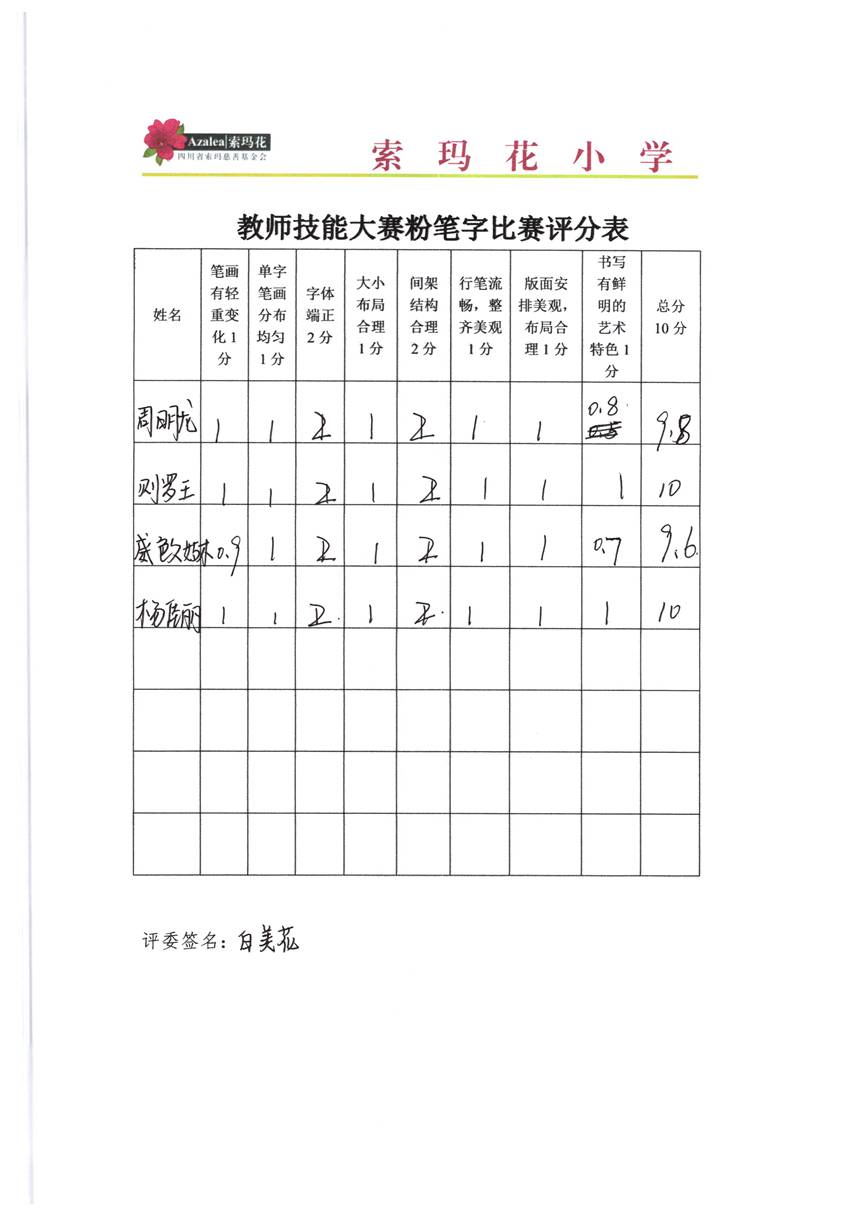 Azalea|索玛花
四川省索玛慈善基金会
索玛花小学
教师技能大赛粉笔字比赛评分表
姓名 笔画有轻重变化1分 单字笔画分布均匀1分 字体端正2分 大小布局合理1分 间架结构合理2分 行笔流畅，整齐美观1分 版面安排美观，布局合理1分 书写有鲜明的艺术特色1分 总分10分
周明龙 1 1 2 1 2 1 1 0.8 9.8
则罗王 1 1 2 1 2 1 1 1 10
0.9 1 2 1 2 1 1 0.7 9.6
1 1 2 1 2 1 1 1 10
评委签名：白美花